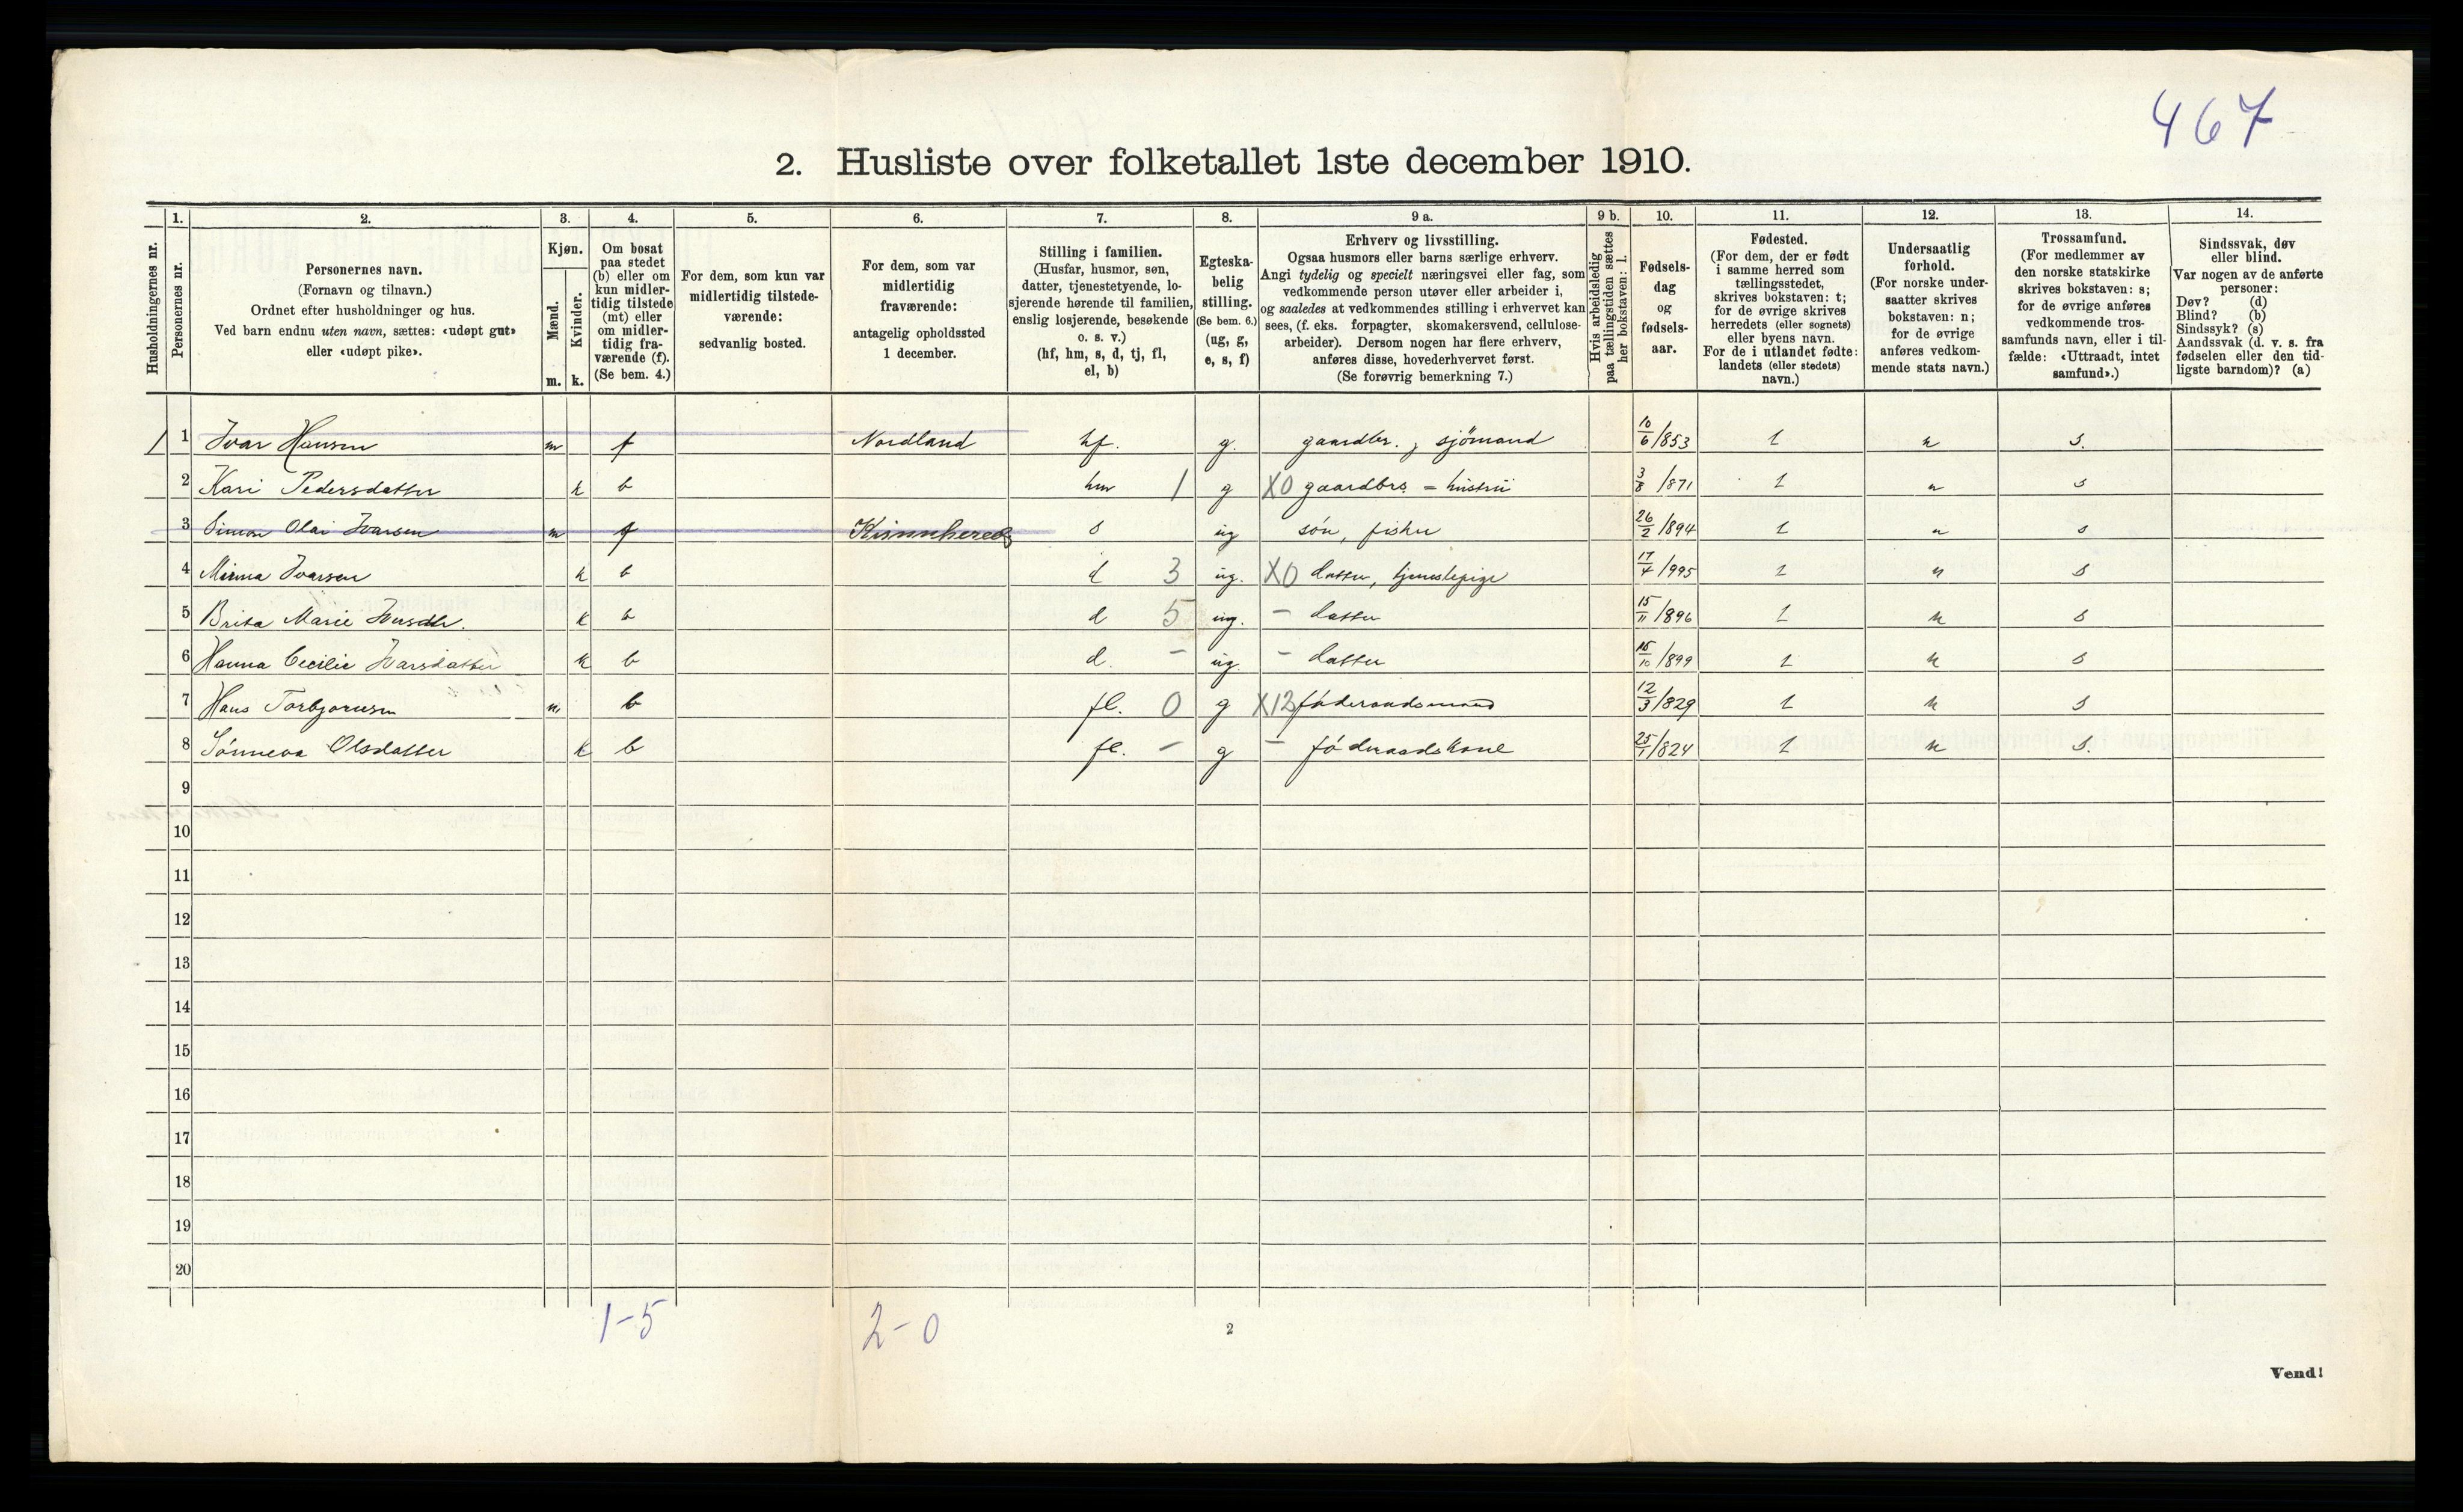 467
2. Husliste over folketallet 1ste december 1910.
Husholdningernes nr.
1. Personernes nr.
2. Personernes navn.
(Fornavn og tilnavn.)
Ordnet efter husholdninger og hus.
Ved barn endnu uten navn, sættes: «udøpt gut»
eller «udøpt pike».
3. Kjøn.
Mænd. m.
Kvinder. k.
4. Om bosat
paa stedet
(b) eller om
kun midler-
tidig tilstede
(mt) eller
om midler-
tidig fra-
værende (f).
(Se bem. 4.)
5. For dem, som kun var
midlertidig tilstede-
værende:
sedvanlig bosted.
6. For dem, som var
midlertidig
fraværende:
antagelig opholdssted
1 december.
7. Stilling i familien.
(Husfar, husmor, søn,
datter, tjenestetyende, lo-
sjerende hørende til familien,
enslig losjerende, besøkende
o. s. v.)
(hf, hm, s, d, tj, fl,
el, b)
8. Egteska-
belig
stilling.
(Se bem. 6.)
(ug, g,
e, s, f)
9 a. Erhverv og livsstilling.
Ogsaa husmors eller barns særlige erhverv.
Angi tydelig og specielt næringsvei eller fag, som
vedkommende person utøver eller arbeider i,
og saaledes at vedkommendes stilling i erhvervet kan
sees, (f. eks. forpagter, skomakersvend, cellulose-
arbeider). Dersom nogen har flere erhverv,
anføres disse, hovederhvervet først.
(Se forøvrig bemerkning 7.)
9 b. Hvis arbeidsledig
paa tællingstiden sættes
her bokstaven: l.
10. Fødsels-
dag
og
fødsels-
aar.
11. Fødested.
(For dem, der er født
i samme herred som
tællingsstedet,
skrives bokstaven: t;
for de øvrige skrives
herredets (eller sognets)
eller byens navn.
For de i utlandet fødte:
landets (eller stedets)
navn.)
12. Undersaatlig
forhold.
(For norske under-
saatter skrives
bokstaven: n;
for de øvrige
anføres vedkom-
mende stats navn.)
13. Trossamfund.
(For medlemmer av
den norske statskirke
skrives bokstaven: s;
for de øvrige anføres
vedkommende tros-
samfunds navn, eller i til-
fælde: «Uttraadt, intet
samfund».)
14. Sindssvak, døv
eller blind.
Var nogen av de anførte
personer:
Døv? (d)
Blind? (b)
Sindssyk? (s)
Aandssvak (d. v. s. fra
fødselen eller den tid-
ligste barndom)? (a)
1 1 Ivar Hansen m f Nordland hf. g. gaardbr., sjömand 10/6/853 t n s.
2 Kari Pedersdatter k b hm 1 g X0 gaardbrs = hustru 3/8/871 t n s
3 Simon Olai Ivarsen m f Kinnherred s ug sön, fisker 26/2/894 t n s
4 Minna Ivarsen k b d 3 ug. X0 datter, tjenestepige 17/4/995 t n s
5 Brita Marie Ivarsdtr. k b d 5 ug. - datter 15/11/896 t n s
6 Hanna Cecilie Ivarsdatter k b d. - ug. - datter 15/10/899 t n s
7 Hans Torbjornsen m. b fl. 0 g X12 föderaadsmand 12/3/829 t n s
8 Sönneva Olsdatter k b fl. - g - föderaadskone 25/1/824 t n s.
9
10
11
12
13
14
15
16
17
18
19
20
1-5 2-0
2
Vend!